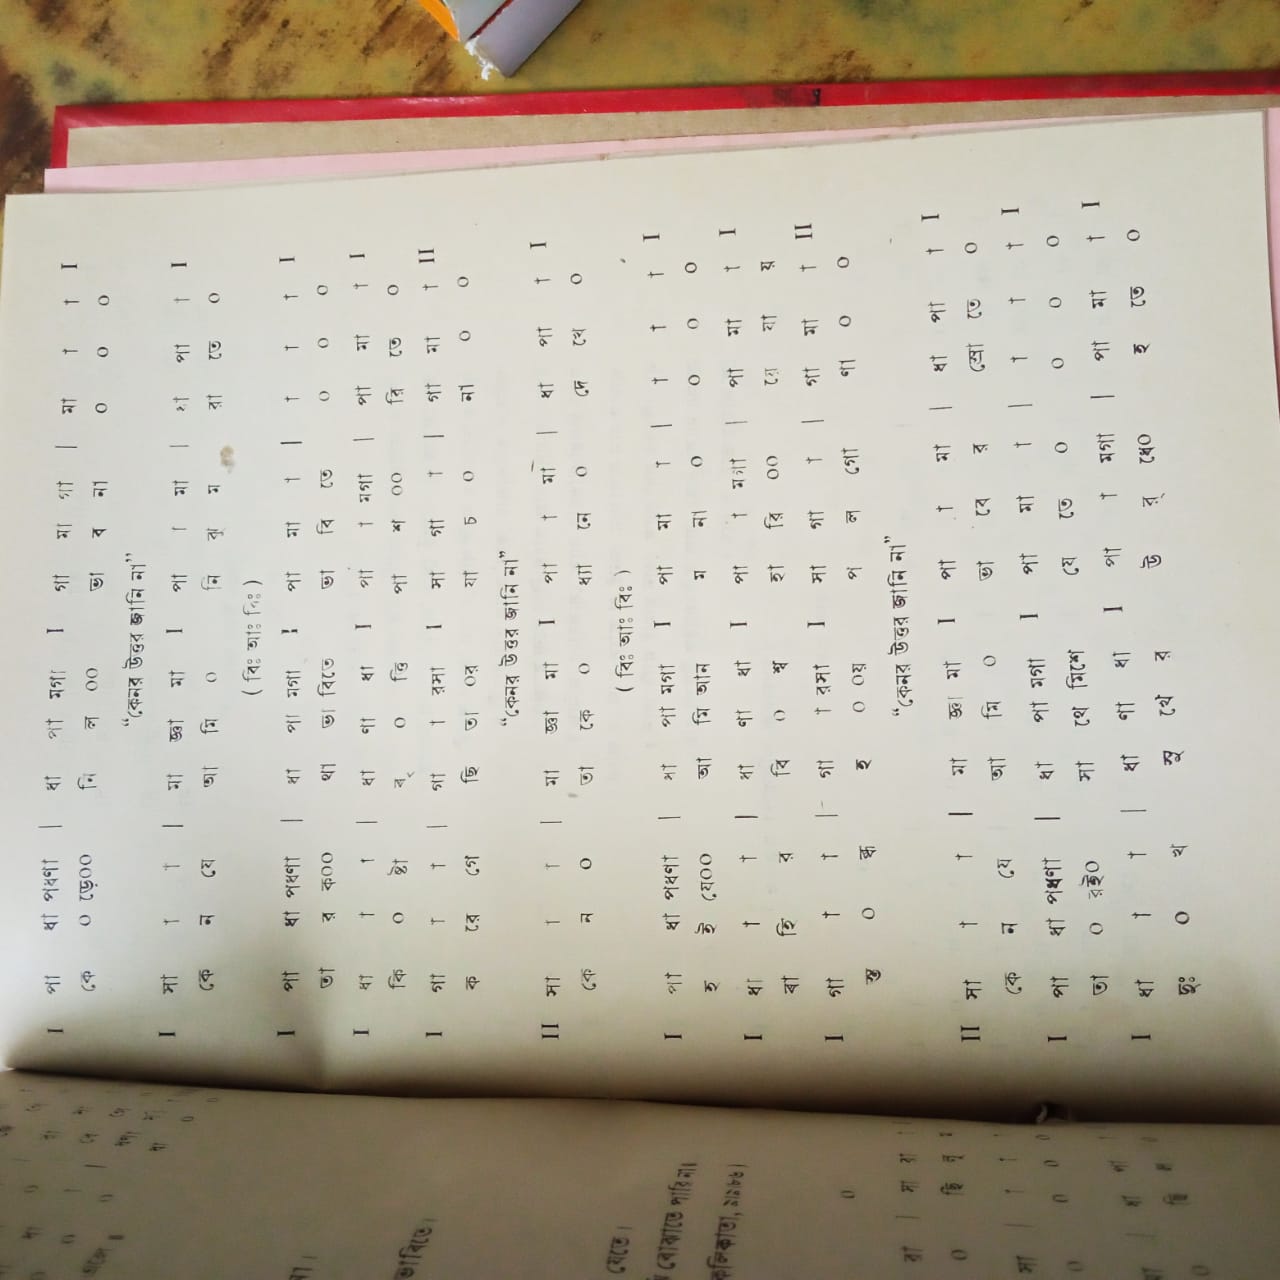 I পা ধা পধণা | ধা পা মগা I গা মা গা | মা া া I
কে ০ ড়ে০০ নি ল ০০ ভা ব না ০ ০ ০
“কেনর উত্তর জানি না”
I সা া া | মা জ্ঞা মা I পা া মা | ধা পা া I
কে ন যে আ মি ০ নি ঝু ম রা তে ০
( বিঃ আঃ বিঃ )
I পা ধা পধণা | ধা পা মগা I পা মা া | া া া I
তা র ক০০ থা ভা বিতে ভা বি তে ০ ০ ০
I ধা া া | ধা ণা ধা I পা া মগা | পা মা া I
কি ০ ন্তু ব্ ০ তি পা শ ০০ রি তে ০
I গা া া | গা া রসা I সা গা া | গা মা া II
ক রে গে ছি তা ০র যা চ ০ না ০ ০
“কেনর উত্তর জানি না”
II সা া া | মা জ্ঞা মা I পা া মা | ধা পা া I
কে ন ০ তা কে ০ ধ্যা নে ০ দে খে ০
( বিঃ আঃ বিঃ )
I পা ধা পধণা | ধা পা মগা I পা মা া | া া া I
হ ই যে০০ আ মি আন ম না ০ ০ ০ ০
I ধা া া | ধা ণা ধা I পা া মগা | পা মা া I
বা হি র বি ০ শ্ব হা রি ০০ য়ে যা য়
I গা া া | গা া রসা I সা গা া | গা মা া II
স্ত ০ ব্ধ হ ০ ০য় প ল গো ণা ০ ০
“কেনর উত্তর জানি না”
II সা া া | মা জ্ঞা মা I পা া মা | ধা পা া I
কে ন যে আ মি ০ ভা বে র স্রো তে ০
I পা ধা পধণা | ধা পা মগা I পা মা া | া া া I
তা ০ রই০ সা থে মিশে যে তে ০ ০ ০ ০
I ধা া া | ধা ণা ধা I পা া মগা | পা মা া I
দুঃ ০ খ সু খে র উ র্ ধে০ হ তে ০
ভাবিতে।
যেতে।
বোঝাতে পারি না॥
কলিকাতা, ১৯৮৬)